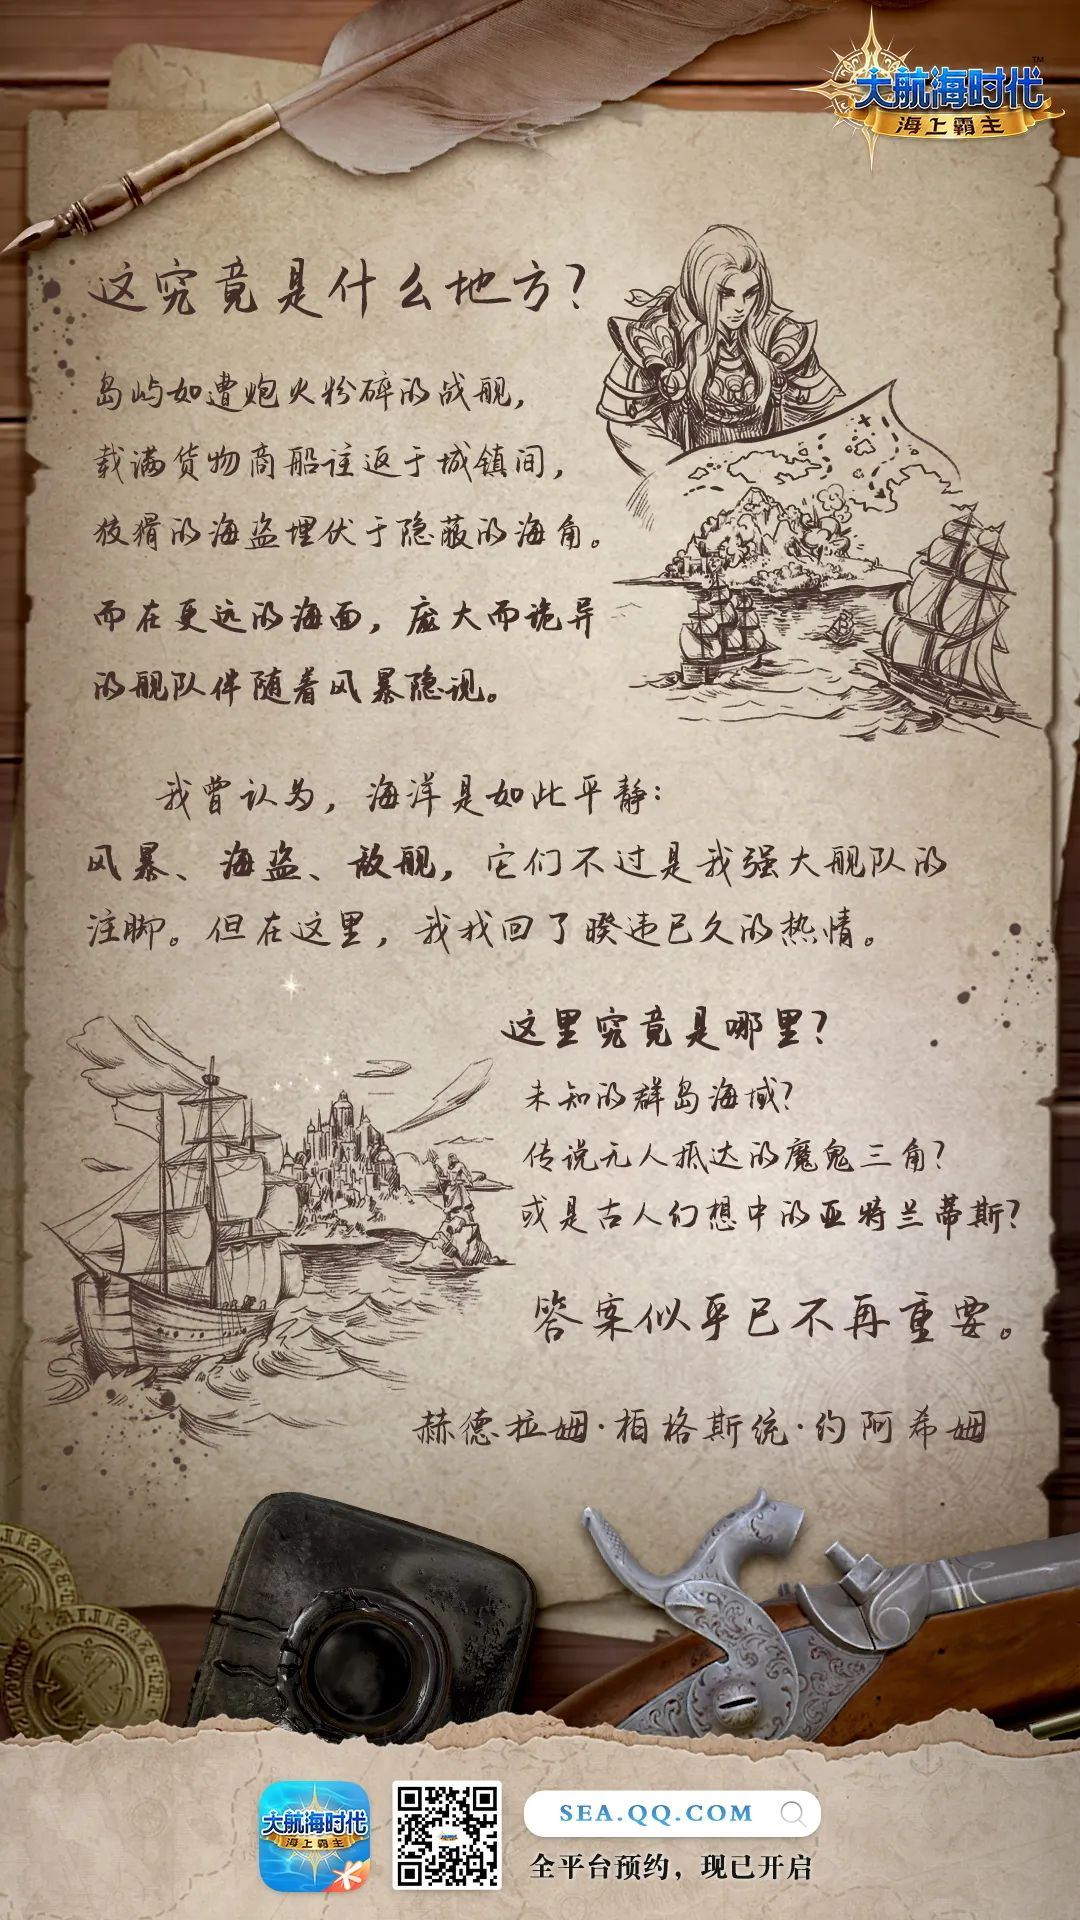 大航海时代
TM
海上霸主
这究竟是什么地方?
岛屿如遭炮火粉碎的战舰,
载满货物商船往返于城镇间,
狡猾的海盗埋伏于隐蔽的海角。
而在更远的海面, 庞大而诡异
的舰队伴随着风暴隐现。
我曾认为, 海洋是如此平静:
风暴、海盗、敌舰, 它们不过是我强大舰队的
注脚。但在这里, 我找回了暌违已久的热情。
这里究竟是哪里?
未知的群岛海域?
传说无人抵达的魔鬼三角?
或是古人幻想中的亚特兰蒂斯?
答案似乎已不再重要。
赫德拉姆·柏格斯统·约阿希姆
大航海时代
海上霸主
SEA.QQ.COM
全平台预约，现已开启